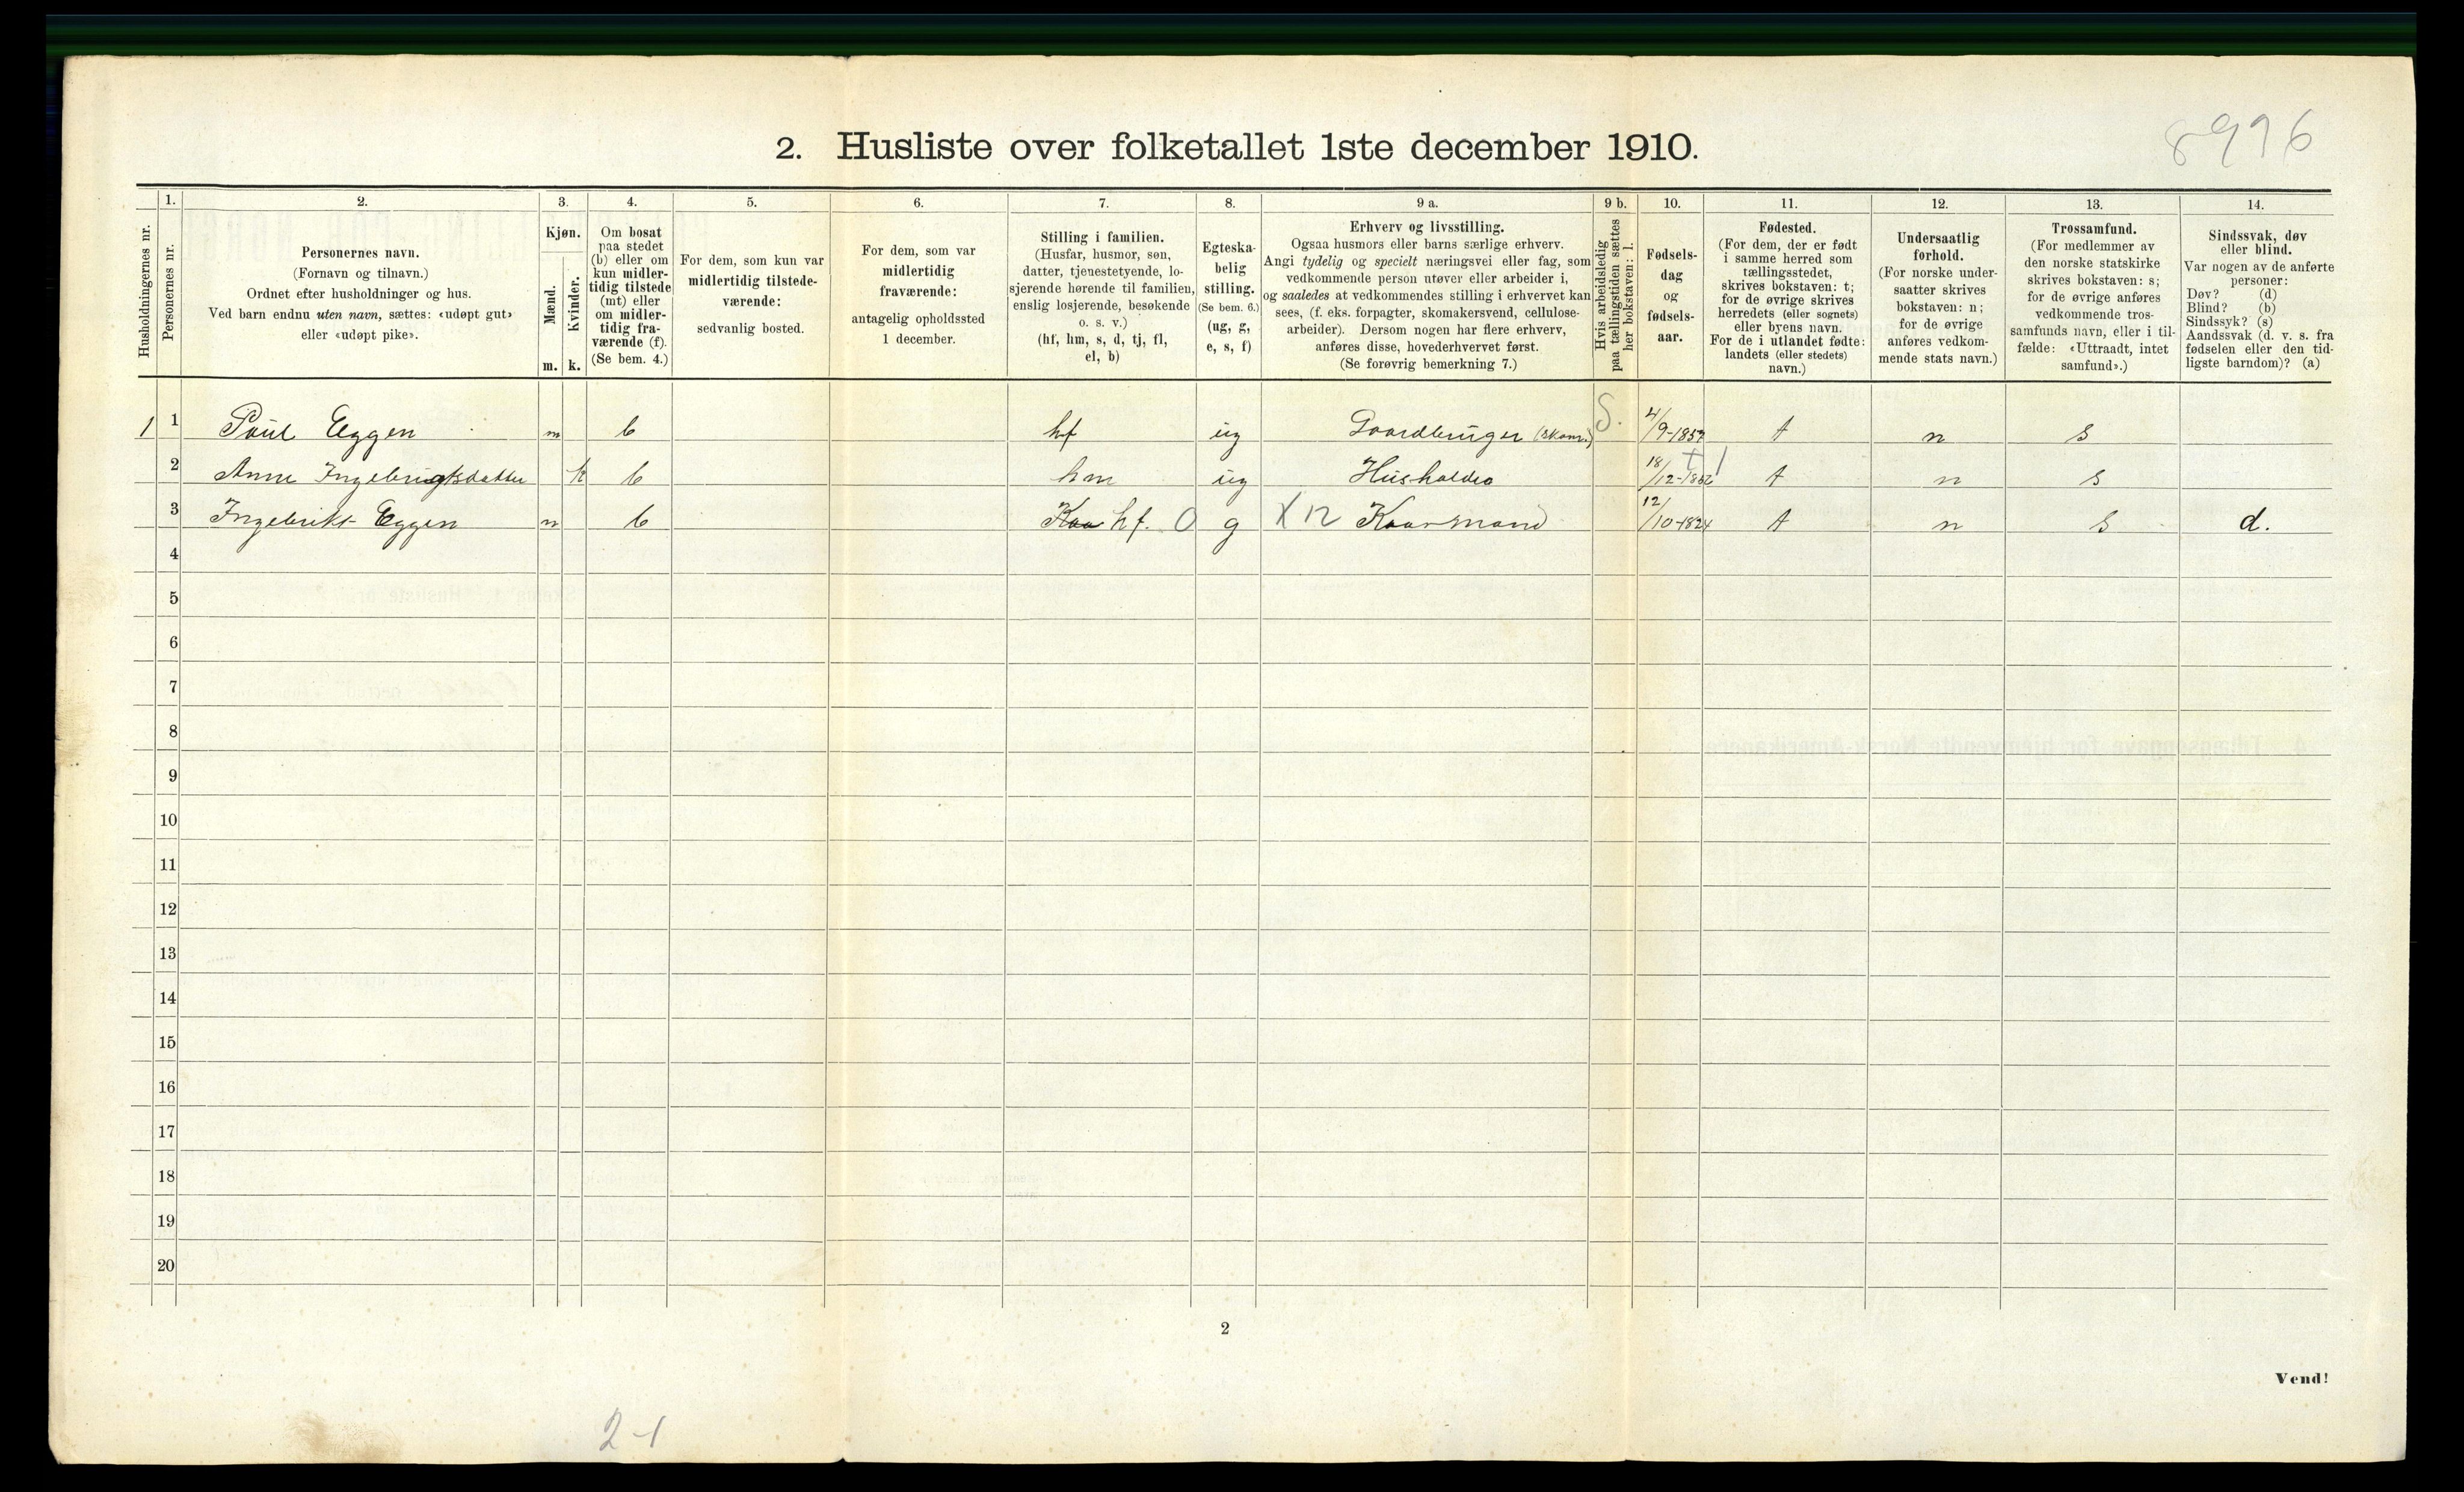 8996
2. Husliste over folketallet 1ste december 1910.
Husholdningernes nr.
1.
Personernes nr.
2.
Personernes navn.
(Fornavn og tilnavn.)
Ordnet efter husholdninger og hus.
Ved barn endnu uten navn, sættes: «udøpt gut»
eller «udøpt pike».
3.
Kjøn.
Mænd.
Kvinder.
m.
k.
4.
Om bosat
paa stedet
(b) eller om
kun midler-
tidig tilstede
(mt) eller
om midler-
tidig fra-
værende (f).
(Se bem. 4.)
5.
For dem, som kun var
midlertidig tilstede-
værende:
sedvanlig bosted.
6.
For dem, som var
midlertidig
fraværende:
antagelig opholdssted
1 december.
7.
Stilling i familien.
(Husfar, husmor, søn,
datter, tjenestetyende, lo-
sjerende hørende til familien,
enslig losjerende, besøkende
o. s. v.)
(hf, hm, s, d, tj, fl,
el, b)
8.
Egteska-
belig
stilling.
(Se bem. 6.)
(ug, g,
e, s, f)
9 a.
Erhverv og livsstilling.
Ogsaa husmors eller barns særlige erhverv.
Angi tydelig og specielt næringsvei eller fag, som
vedkommende person utøver eller arbeider i,
og saaledes at vedkommendes stilling i erhvervet kan
sees, (f. eks. forpagter, skomakersvend, cellulose-
arbeider). Dersom nogen har flere erhverv,
anføres disse, hovederhvervet først.
(Se forøvrig bemerkning 7.)
9 b.
Hvis arbeidsledig
paa tællingstiden sættes
her bokstaven: l.
10.
Fødsels-
dag
og
fødsels-
aar.
11.
Fødested.
(For dem, der er født
i samme herred som
tællingsstedet,
skrives bokstaven: t;
for de øvrige skrives
herredets (eller sognets)
eller byens navn.
For de i utlandet fødte:
landets (eller stedets)
navn.)
12.
Undersaatlig
forhold.
(For norske under-
saatter skrives
bokstaven: n;
for de øvrige
anføres vedkom-
mende stats navn.)
13.
Trossamfund.
(For medlemmer av
den norske statskirke
skrives bokstaven: s;
for de øvrige anføres
vedkommende tros-
samfunds navn, eller i til-
fælde: «Uttraadt, intet
samfund».)
14.
Sindssvak, døv
eller blind.
Var nogen av de anførte
personer:
Døv? (d)
Blind? (b)
Sindssyk? (s)
Aandssvak (d. v. s. fra
fødselen eller den tid-
ligste barndom)? (a)
1 1 Paul Eggen m b hf ug Gaardbruger S. 4/9-1857 t n s
2 Anne Ingebrigtsdatter k b hm ug Husholder 18/12-1862 t n s
3 Ingebrikt Eggen m b Kaa hf. 0 g X 12 Kaarmand 12/10-1824 t n s d.
4
5
6
7
8
9
10
11
12
13
14
15
16
17
18
19
20
2
Vend!
2-1